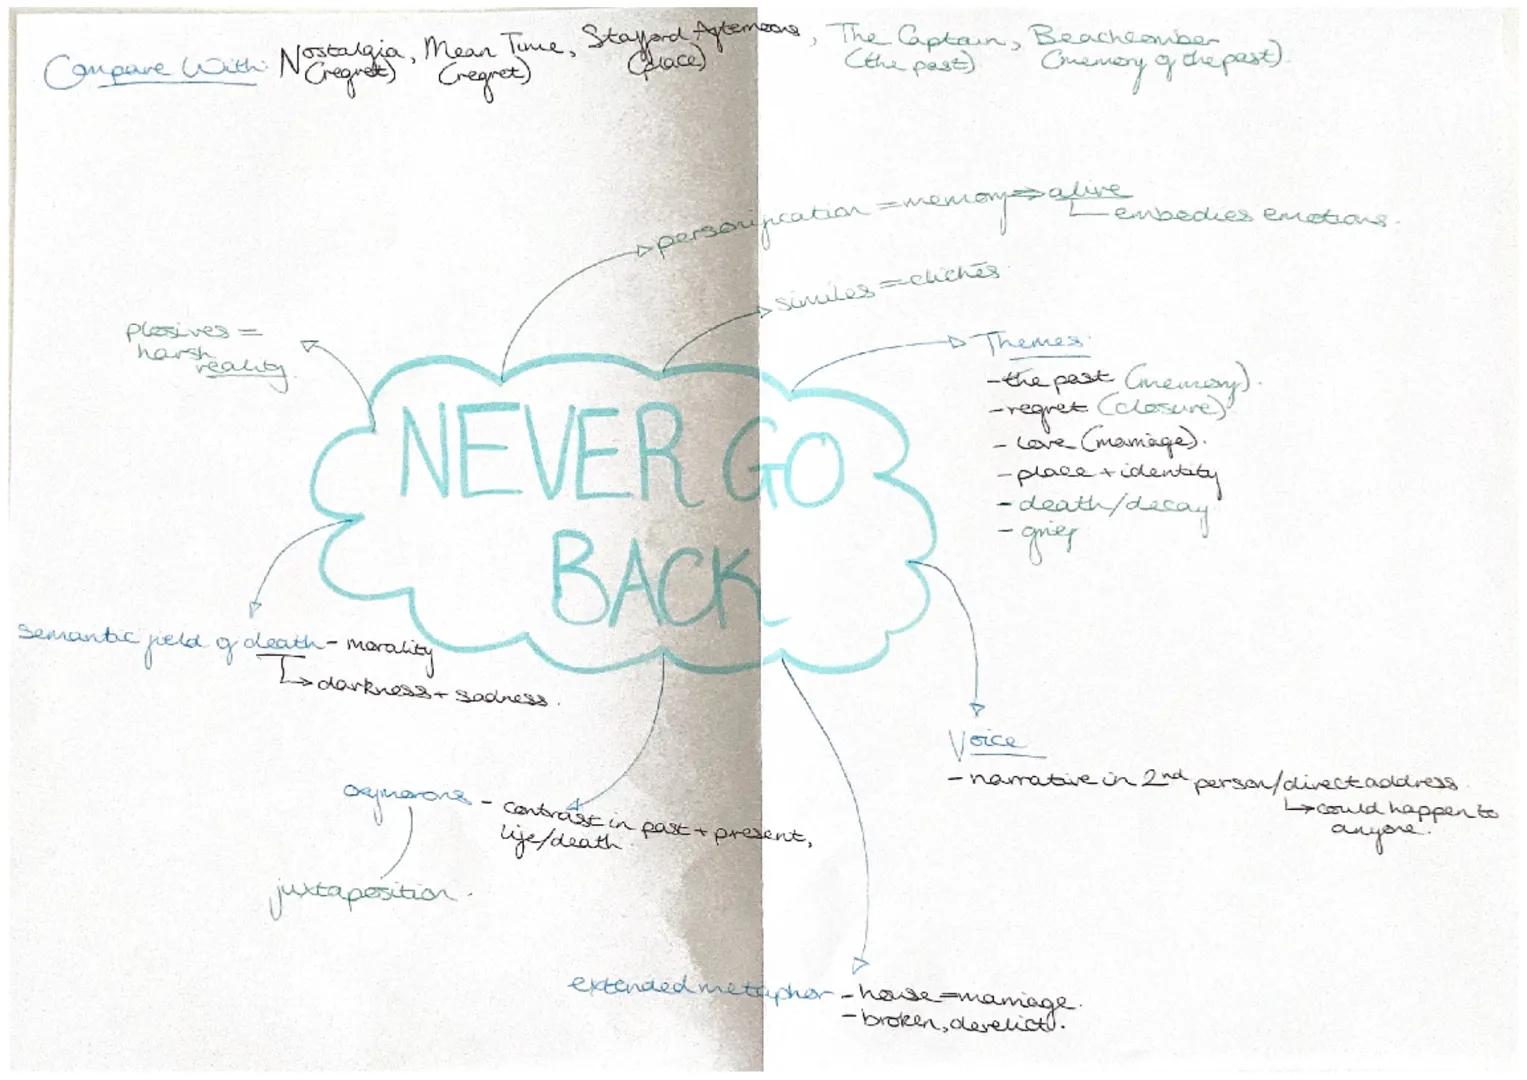 Compare With: Nostalgia, Mean Time, Stafford Afternoons, The Captain, Beachcomber
(regret) (regret) (place) (the past) (memory of the past).
personification = memory => alive
embodies emotions.
similes = clichés
plosives =
harsh
reality
Themes:
- the past (memory).
- regret (closure)
- love (marriage).
- place + identity
- death/decay
- grief
NEVER GO
BACK
semantic field of death - morality
darkness + sadness.
Voice
- narrative in 2nd person/direct address
could happen to
anyone.
oxymorons - contrast in past + present,
life/death.
juxtaposition.
extended metaphor - house = marriage.
- broken, derelict.